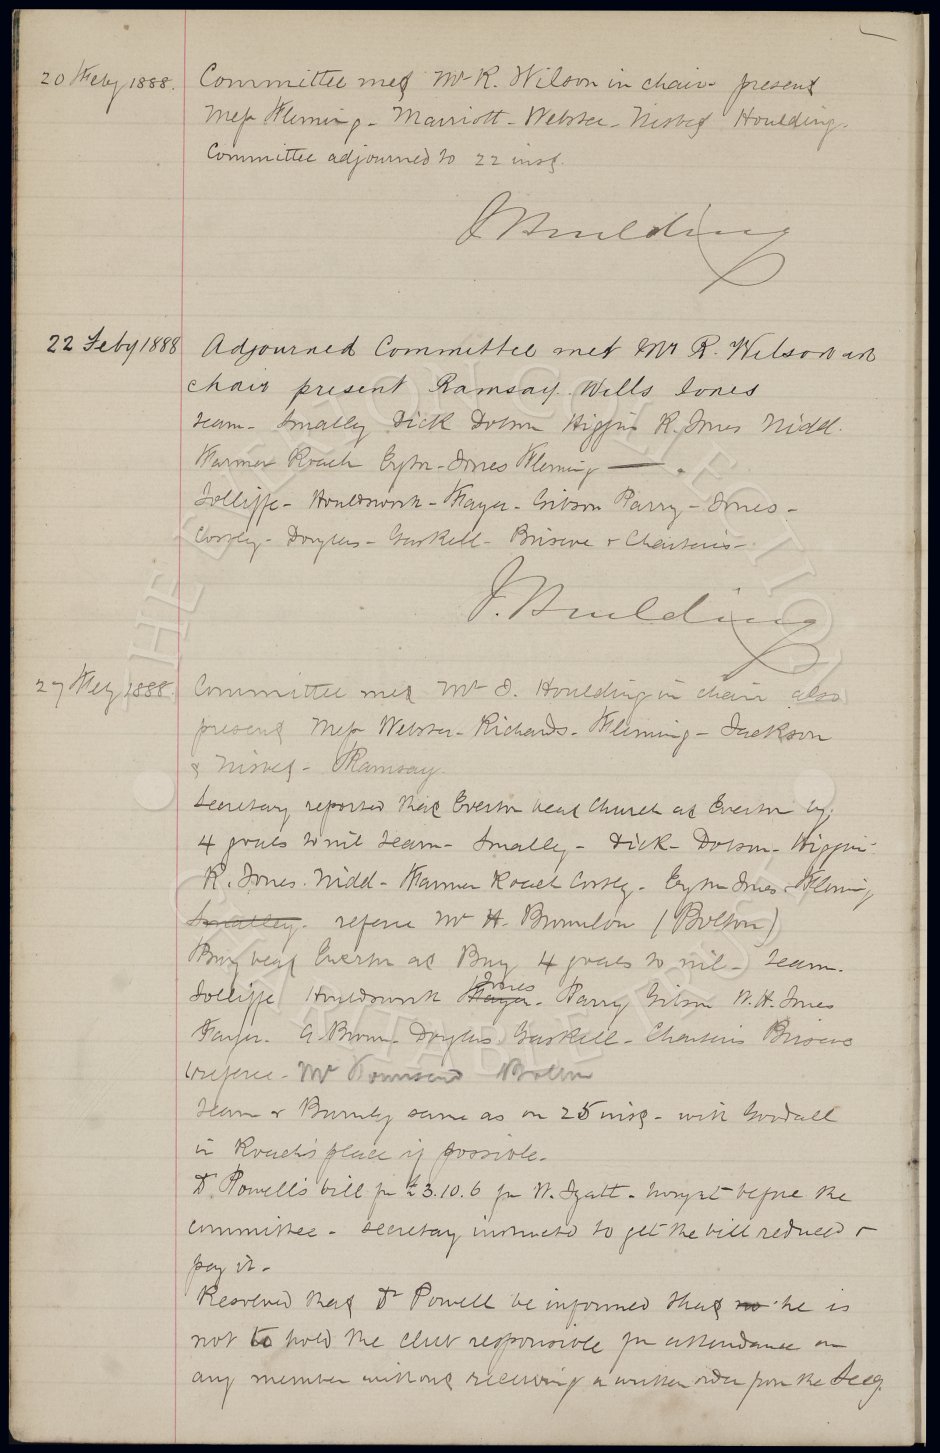 20 Feby 1888. Committee met Mr R. Wilson in chair - present
Mess Fleming - Marriott - Webster - Nisbet Houlding.
Committee adjourned to 22 inst.
J Houlding
22 Feby 1888 Adjourned Committee met Mr R. Wilson in
chair present Ramsay. Wills Jones
Team - Smalley Dick Dobson Higgins R. Jones Nidd.
Farmer Roach Eyton-Jones Fleming — .
Jolliffe - Houldsworth - Fayer - Gibson Parry - Jones -
Corrley - Douglas - Gaskell - Briscoe & Charteris -
J. Houlding
27 Feby 1888. Committee met Mr J. Houlding in chair also
present Mess Webster - Richards - Fleming - Jackson
& Nisbet - Ramsay.
Secretary reported that Everton beat Church at Everton by
4 goals to nil Team - Smalley - Dick - Dobson - Higgins -
R. Jones. Nidd - Farmer Roach Corrley - Eyton Jones - Fleming
Smalley. referee Mr H. Bromilow (Bolton)
Bury beat Everton at Bury 4 goals to nil - Team.
Jolliffe Houldsworth Fayer Jones - Parry Gibson W. H. Jones
Fayer. A. Brown - Douglas Gaskell - Charteris Briscoe
referee - Mr Townsend Bolton
Team v Burnley same as on 25 inst - with Goodall
in Roach's place if possible -
Dr Powell's bill for £3.10.6 for W. Izatt - brought before the
committee - secretary instructed to get the bill reduced &
pay it -
Resolved that Dr Powell be informed that no he is
not to hold the club responsible for attendance on
any member without receiving a written order from the Secy.
THE EVERTON COLLECTION
CHARITABLE TRUST